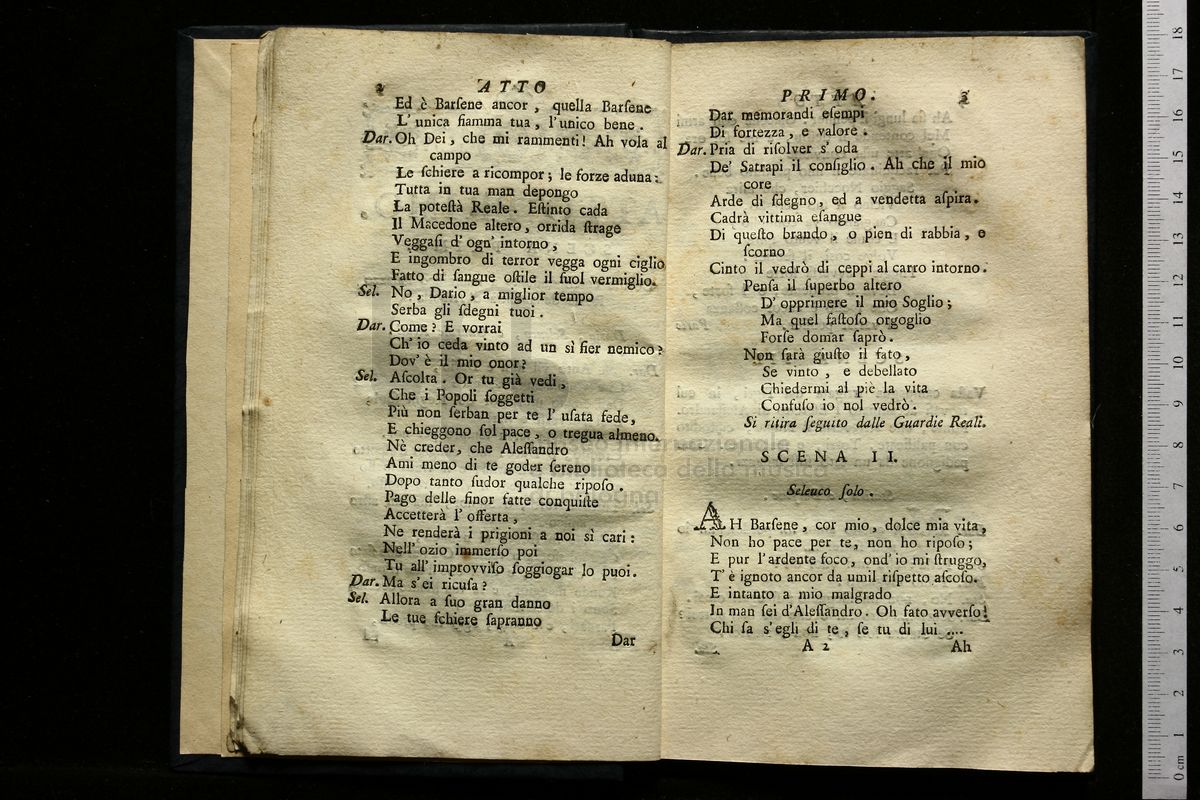 2 ATTO
Ed è Barſene ancor, quella Barſene
L' unica fiamma tua, l'unico bene.
Dar. Oh Dei, che mi rammenti! Ah vola al
campo
Le ſchiere a ricompor; le forze aduna:
Tutta in tua man depongo
La poteſtà Reale. Eſtinto cada
Il Macedone altero, orrida ſtrage
Veggaſi d' ogn' intorno,
E ingombro di terror vegga ogni ciglio
Fatto di ſangue oſtile il ſuol vermiglio.
Sel. No, Dario, a miglior tempo
Serba gli ſdegni tuoi.
Dar. Come? E vorrai
Ch' io ceda vinto ad un sì fier nemico?
Dov' è il mio onor?
Sel. Aſcolta. Or tu già vedi,
Che i Popoli ſoggetti
Più non ſerban per te l' uſata fede,
E chieggono ſol pace, o tregua almeno.
Nè creder, che Aleſſandro
Ami meno di te goder ſereno
Dopo tanto ſudor qualche ripoſo.
Pago delle finor fatte conquiſte
Accetterà l' offerta,
Ne renderà i prigioni a noi sì cari:
Nell' ozio immerſo poi
Tu all' improvviſo ſoggiogar lo puoi.
Dar. Ma s' ei ricuſa?
Sel. Allora a ſuo gran danno
Le tue ſchiere ſapranno
Dar
PRIMO. 3
Dar memorandi eſempi
Di fortezza, e valore.
Dar. Pria di riſolver s' oda
De' Satrapi il conſiglio. Ah che il mio
core
Arde di ſdegno, ed a vendetta aſpira.
Cadrà vittima eſangue
Di queſto brando, o pien di rabbia, e
ſcorno
Cinto il vedrò di ceppi al carro intorno.
Penſa il ſuperbo altero
D' opprimere il mio Soglio;
Ma quel faſtoſo orgoglio
Forſe domar ſaprò.
Non ſarà giuſto il fato,
Se vinto, e debellato
Chiedermi al piè la vita
Confuſo io nol vedrò.
Si ritira ſeguito dalle Guardie Reali.
SCENA II.
Seleuco ſolo.
AH Barſene, cor mio, dolce mia vita,
Non ho pace per te, non ho ripoſo;
E pur l'ardente foco, ond' io mi ſtruggo,
T' è ignoto ancor da umil riſpetto aſcoſo.
E intanto a mio malgrado
In man ſei d'Aleſſandro. Oh fato avverſo!
Chi ſa s' egli di te, ſe tu di lui ....
A 2 Ah